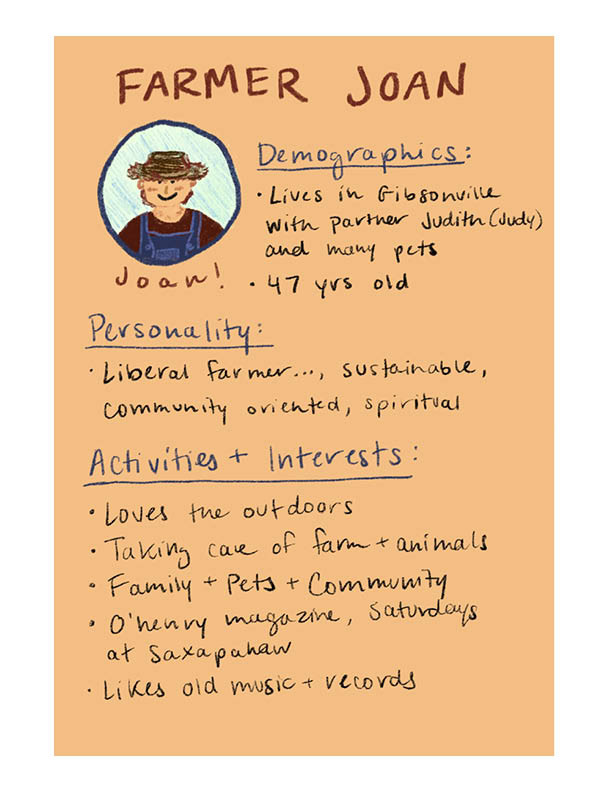 FARMER JOAN
Joan!
Demographics:
• Lives in Gibsonville
with partner Judith (Judy)
and many pets
• 47 yrs old
Personality:
• Liberal farmer..., sustainable,
community oriented, spiritual
Activities + Interests:
• Loves the outdoors
• Taking care of farm + animals
• Family + Pets + Community
• O'henry magazine, Saturdays
at Saxapahaw
• Likes old music + records